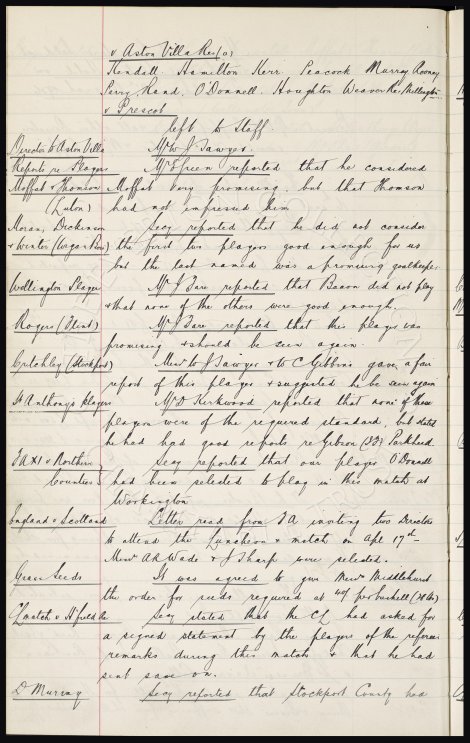 v Aston Villa Res (a)
Kendall. Hamilton Kerr. Peacock Murray Rooney
Perry Rand. O'Donnell. Houghton Weaver Res. Millington
v Prescot
left to Staff.
Director to Aston Villa Mr W J Sawyer.
Reports re Players Mr Green reported that he considered
Moffat & Thomson Moffat very promising, but that Thomson
(Luton) had not impressed him
Moran, Dickinson Secy reported that he did not consider
& Winter (Wigan Boro) the first two players good enough for us
but the last named was a promising goalkeeper
Wellington Player Mr J Bare reported that Bacon did not play
& that none of the others were good enough.
Rogers (Flint) Mr J Bare reported that this player was
promising & should be seen again.
Critchley (Stockport) Messrs W J Sawyer & W C Gibbins gave a fair
report of this player & suggested he be seen again
St Anthony's players Mr D Kirkwood reported that none of these
players were of the required standard, but stated
he had had good reports re Gibson (IR) Parkhead.
F A XI v Northern Secy reported that our player O'Donnell
Counties had been selected to play in this match at
Workington
England v Scotland Letter read from F A inviting two Directors
to attend the Luncheon & match on Apl 17th
Messrs A R Wade & J Sharp were selected.
Grass Seeds It was agreed to give Messrs Middlehurst
the order for seeds required at per bushell
CL match v H'field Res Secy stated that the CL had asked for
a signed statement by the players of the referees
remarks during this match & that he had
sent same on.
D Murray Secy reported that Stockport County had